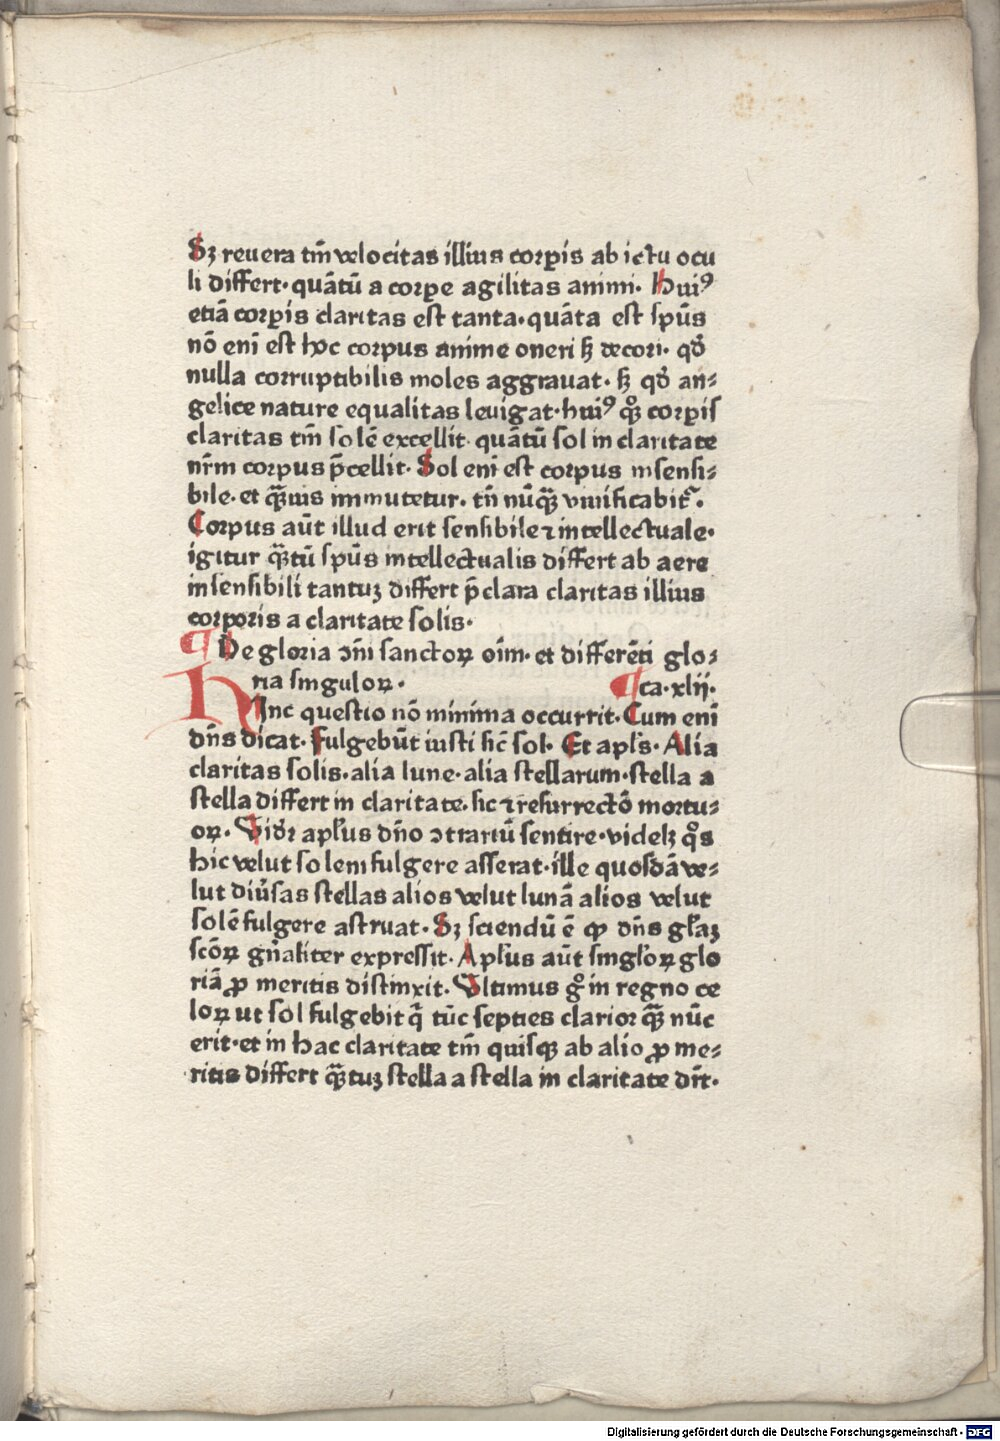 Sꝫ reuera tm̄ velocitas illius corꝑis ab ictu ocu
li differt· quātū a corꝑe agilitas animi· Huiꝰ
etiā corꝑis claritas est tanta· quāta est spūs
nō enī est hoc corpus anime oneri sꝫ decori· qđ
nulla corruptibilis moles aggrauat· sꝫ qđ an⸗
gelice nature equalitas leuigat· huiꝰ qͦꝫ corꝑis
claritas tm̄ solē excellit· quātū sol in claritate
nr̄m corpus p̄cellit· Sol enī est corpus insensi⸗
bile· et qͣꝫuis immutetur· tn̄ nūqͣꝫ viuificabit᷑·
Corpus aūt illud erit sensibile ⁊ intellectuale·
igitur qͣꝫtū spūs intellectualis differt ab aere
insensibili tantuꝫ differt p̄clara claritas illius
corporis a claritate solis·
¶ De gloria ꝯm̄i sanctoꝝ oīm· et differēti glo⸗
ria singuloꝝ·
¶ ca·xlii·
HInc questio nō minima occurrit· Cum enī
dn̄s dicat· Fulgebūt iusti sic̄ sol· Et apl̄s· Alia
claritas solis· alia lune· alia stellarum· stella a
stella differt in claritate· sic ⁊ resurrectō mortu⸗
oꝝ· Videt᷑ apl̄us dn̄o ꝯtrariū sentire· videlꝫ qͦs
hic velut solem fulgere asserat· ille quosdā ve⸗
lut diūsas stellas alios velut lunā alios velut
solē fulgere astruat· Sꝫ sciendū ē ꝙ dn̄s gl̄aꝫ
scōꝝ gn̄aliter expressit· Apl̄us aūt singl̄oꝝ glo
riā ꝓ meritis distinxit· Vltimus gͦ in regno ce
loꝝ ut sol fulgebit qͥ tūc septies clarior qͣꝫ nūc
erit· et in hac claritate tm̄ quisqꝫ ab alio ꝓ me⸗
ritis differt qͣꝫtuꝫ stella a stella in claritate dr̄t·
Digitalisierung gefördert durch die Deutsche Forschungsgemeinschaft - DFG